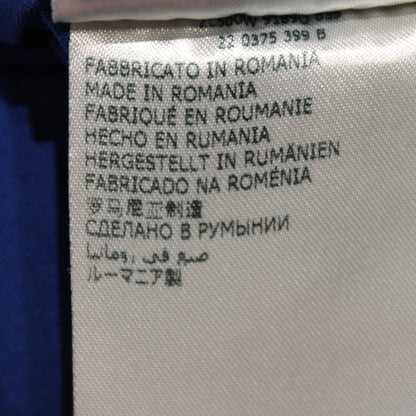 22 0375 399 B
FABBRICATO IN ROMANIA
MADE IN ROMANIA
FABRIQUÉ EN ROUMANIE
HECHO EN RUMANIA
HERGESTELLT IN RUMÄNIEN
FABRICADO NA ROMÉNIA
罗马尼亚制造
СДЕЛАНО В РУМЫНИИ
صنع في رومانيا
ルーマニア製